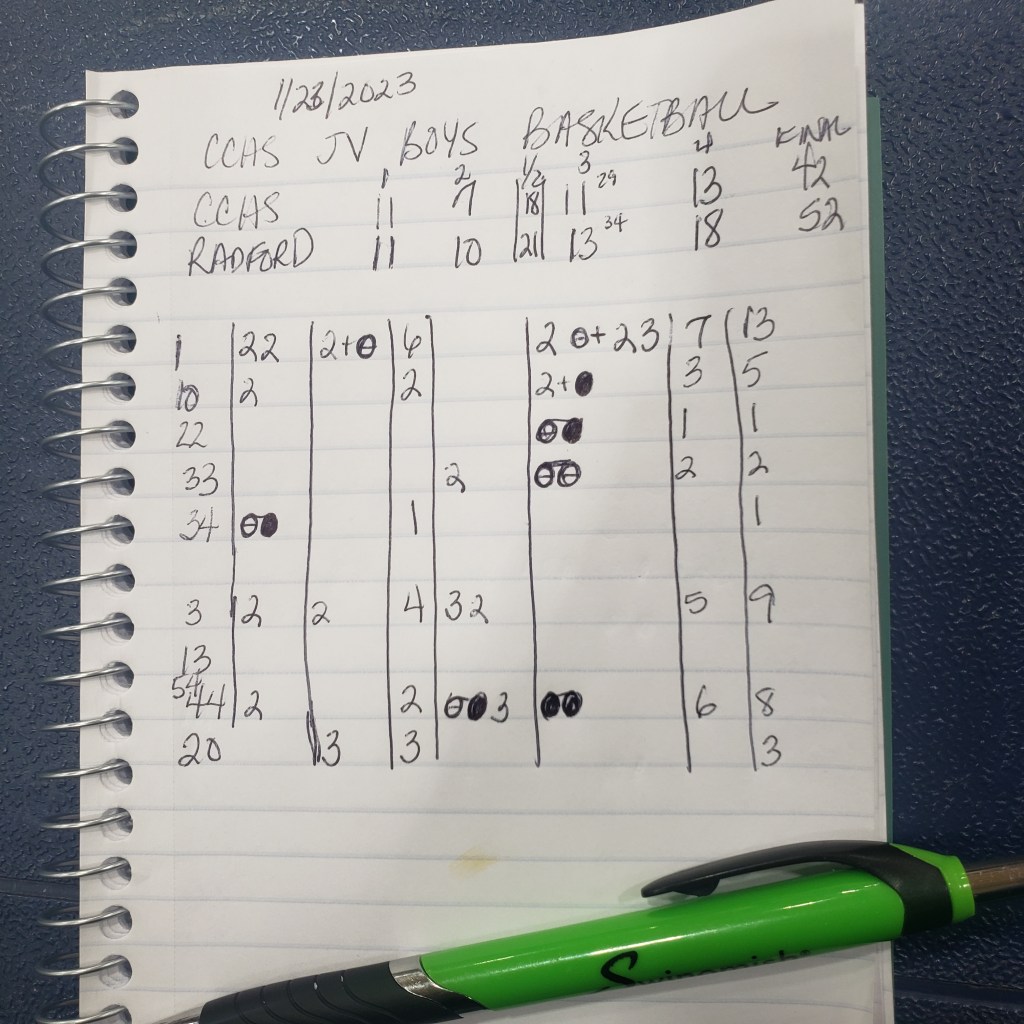 1/23/2023
CCHS JV BOYS BASKETBALL
1 2 1/2 3 4 FINAL
CCHS 11 7 18 11 29 13 42
RADFORD 11 10 21 13 34 18 52
1 22 2+⊖ 6 2 ⊖+ 23 7 13
10 2 2 2+● 3 5
22 ⊖● 1 1
33 2 ⊖⊖ 2 2
34 ⊖● 1 1
3 2 2 4 32 5 9
13
54
44 2 2 ⊖●3 ●● 6 8
20 3 3 3